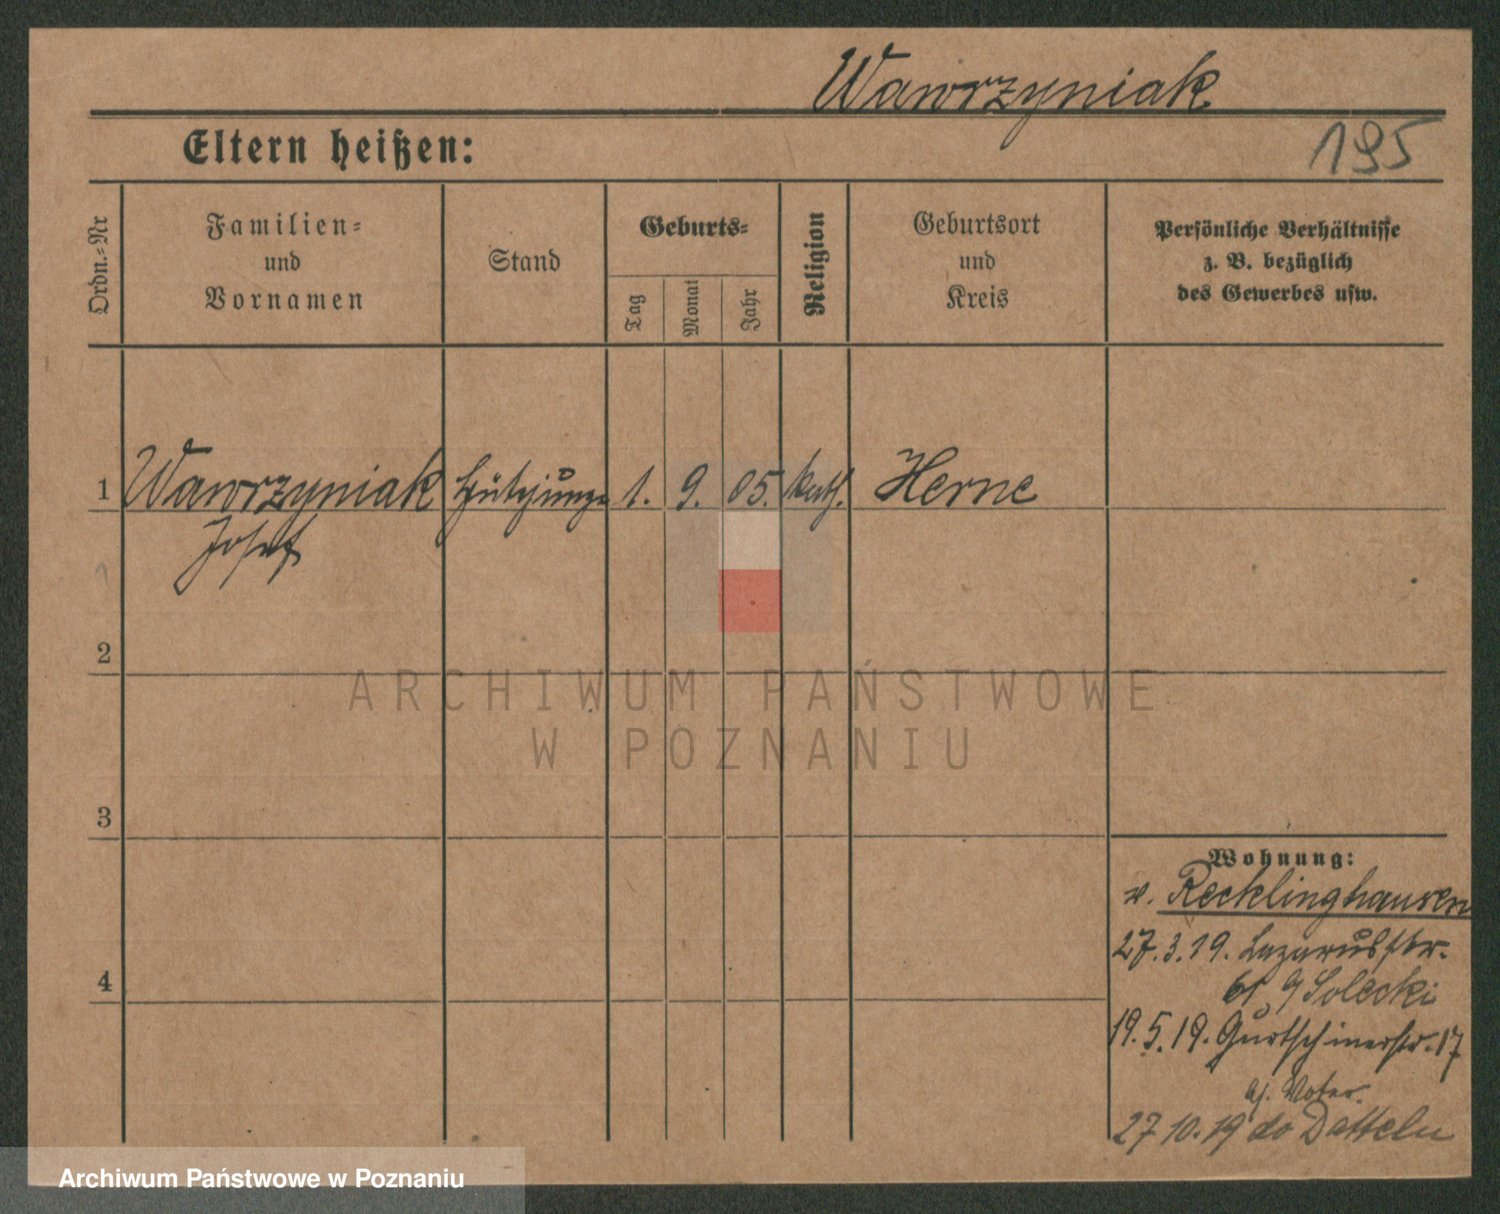 Wawrzyniak
195
Eltern heißen:
Ordn.-Nr
Familien-
und
Vornamen
Stand
Geburts-
Tag
Monat
Jahr
Religion
Geburtsort
und
Kreis
Persönliche Verhältnisse
z. B. bezüglich
des Gewerbes usw.
1 Wawrzyniak 1. 9. 05. kath. Herne
Josef
2
ARCHIWUM PAŃSTWOWE
W POZNANIU
3
Wohnung:
v. Recklinghausen
27.3.19. Lazarusstr.
Solecki
4
19.5.19. Gurtschinerstr. 17
27 10. 19 do Datteln
Archiwum Państwowe w Poznaniu